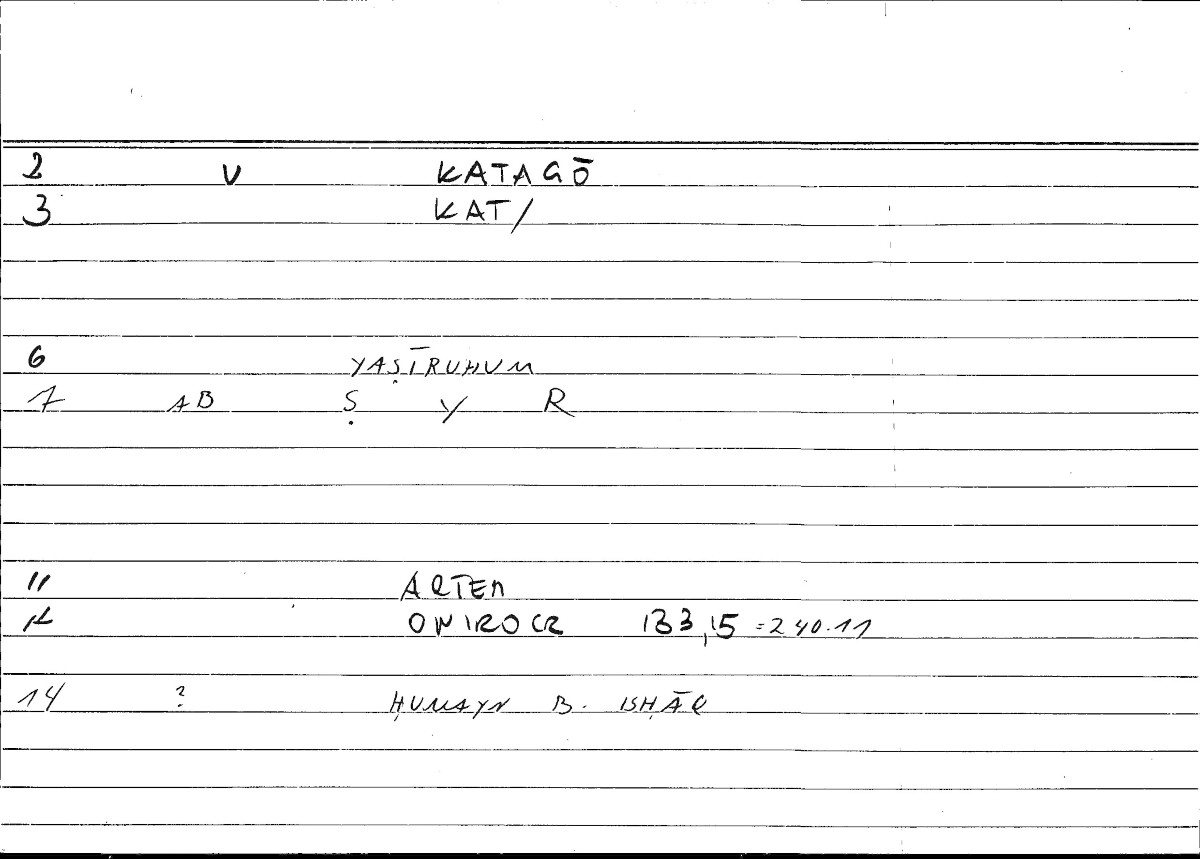 2 V KATAGŌ
3 KAT/
6 YAṢĪRUHUM
7 AB Ṣ Y R
11 ARTEM
12 ONIROCR 133,15 = 240.11
14 ? ḤUNAYN B. ISḤĀQ